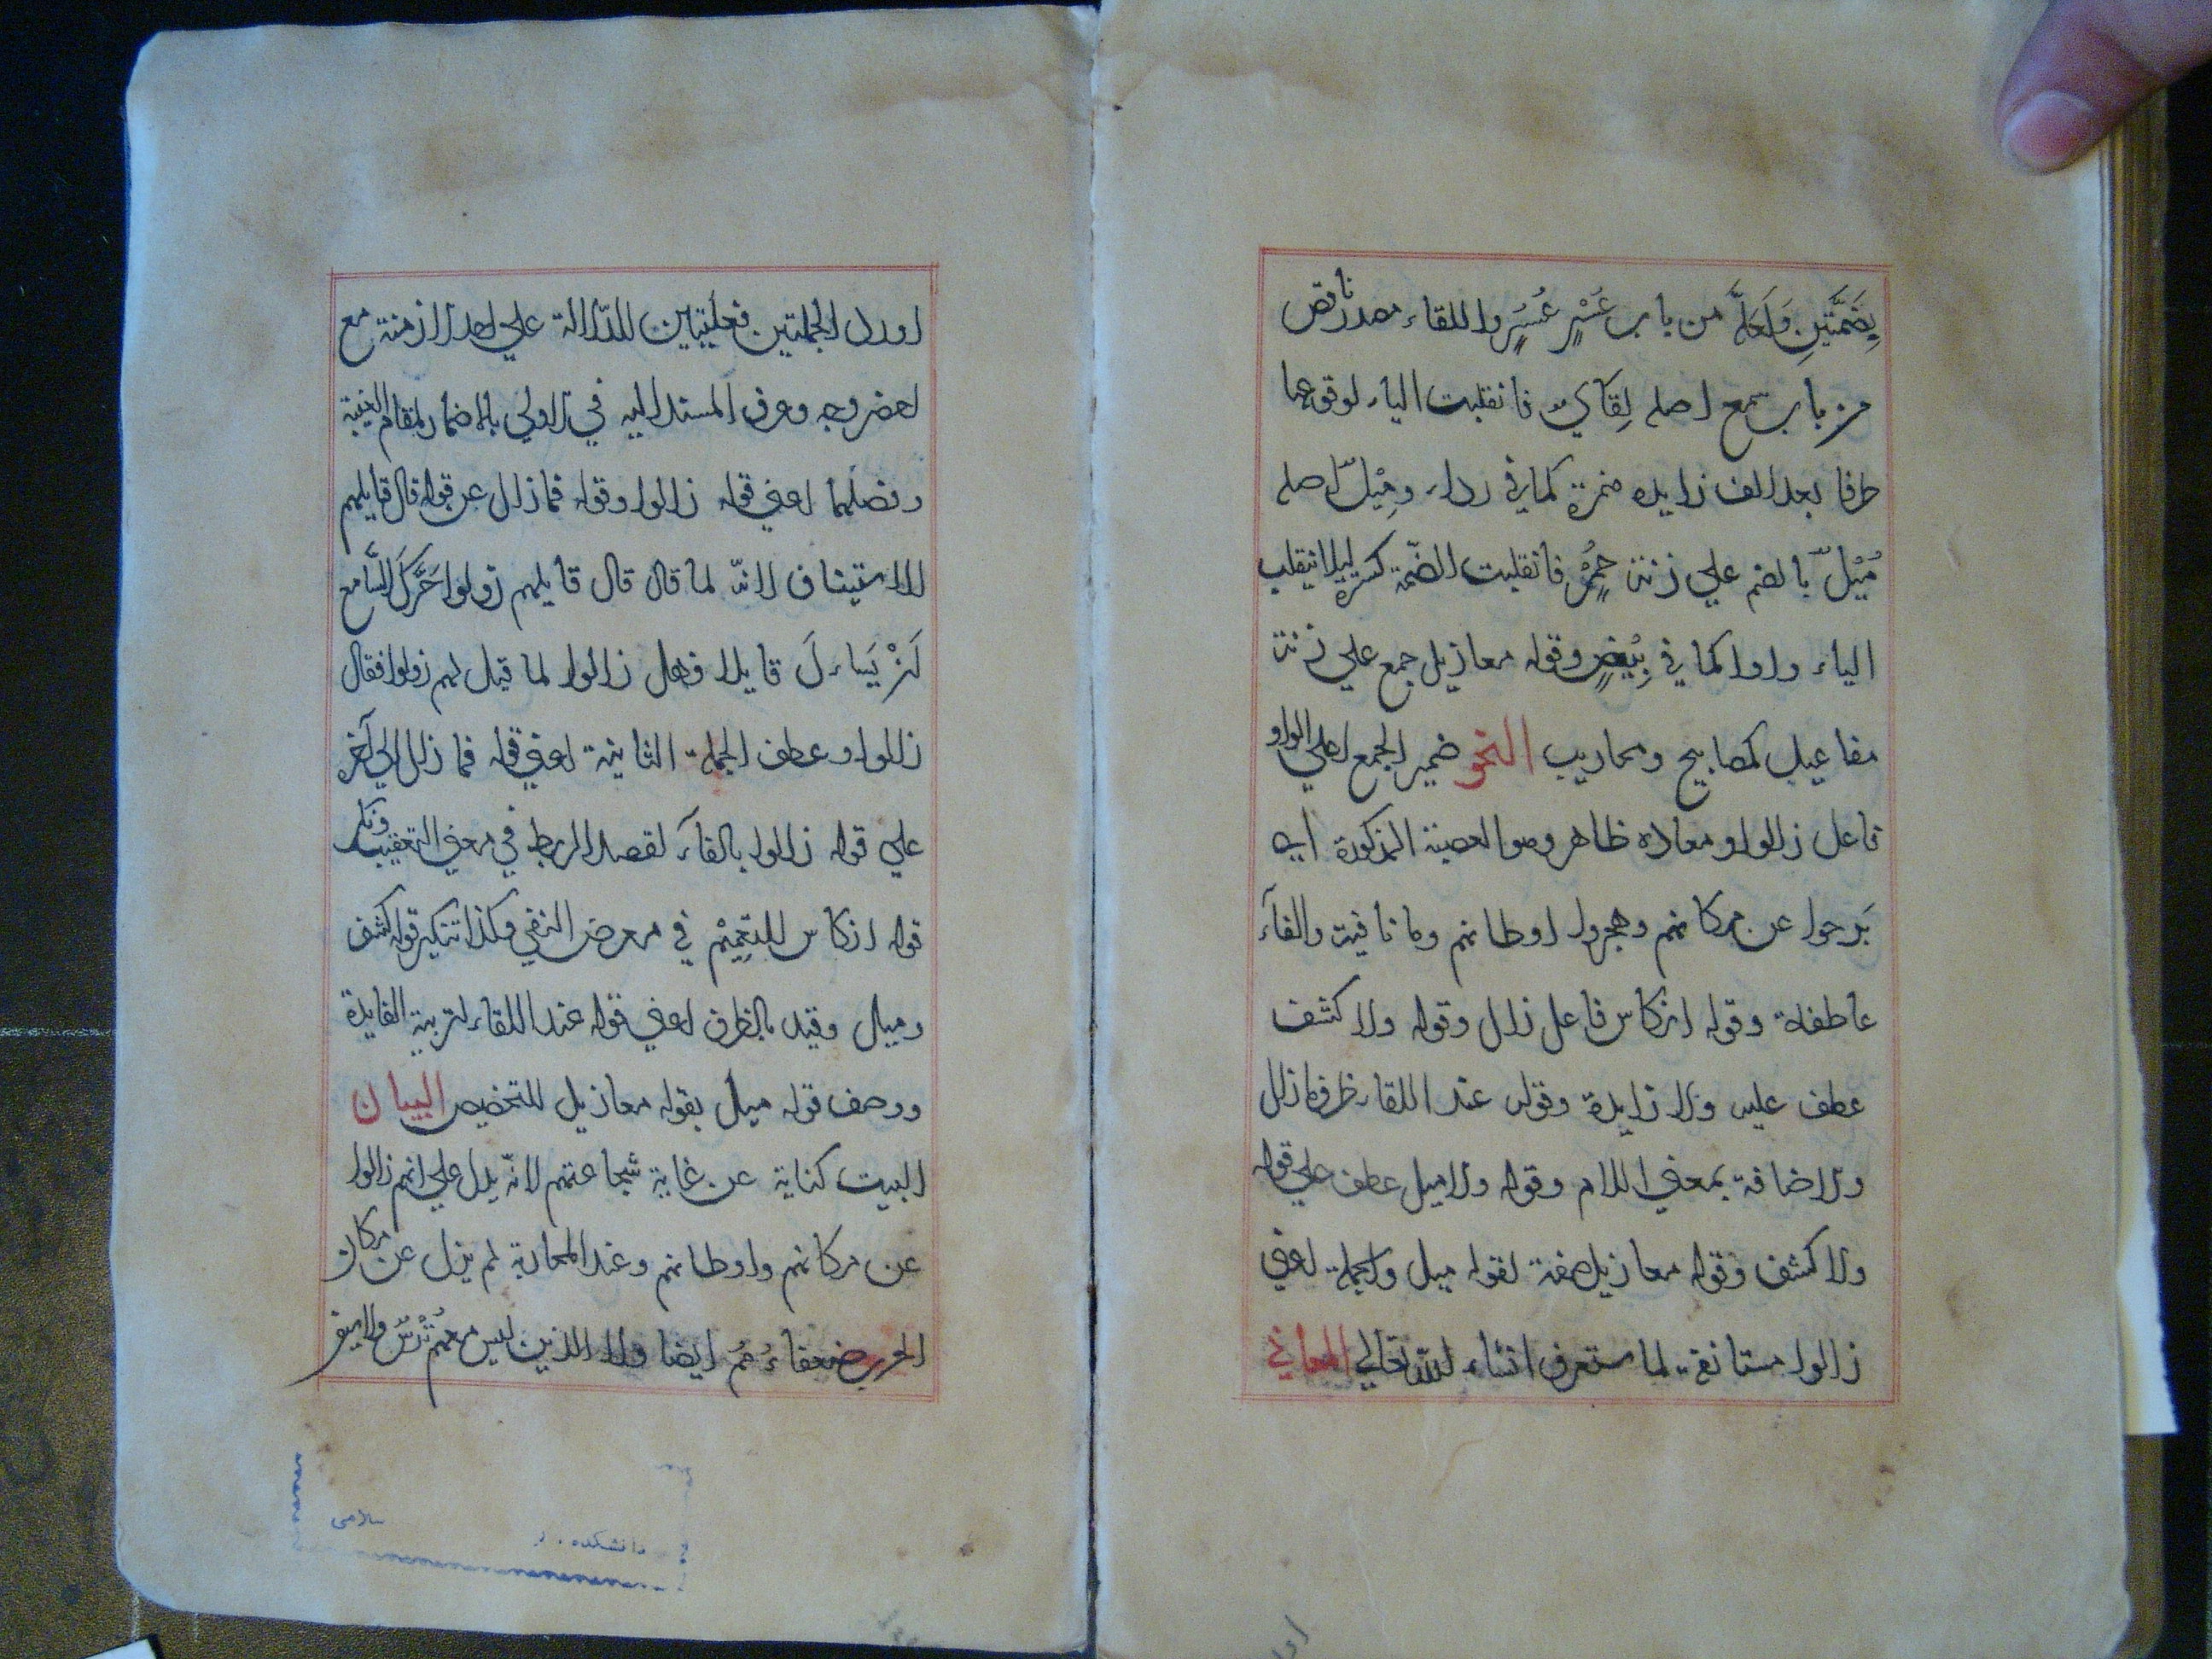 بِضَمَّتَينِ وَلَعَلَّه من باب عُسْرٍ عُسُرٍ واللقاء مصدر ناقص
من باب سمع اصله لِقَايٌ فانقلبت الياء لوقوعها
طرفا بعد الف زايده همزة كما في رداء ومِيْلٌ اصله
مُيْلٌ بالضم علي زنة حُمْرٍ فانقلبت الضمّة كسرة ليلا ينقلب
الياء واوا كما في بِيْضٍ وقوله معازيل جمع علي زنة
مفاعيل كمصابيح ومحاريب النحو ضمير الجمع اعني الواو
فاعل زالوا ومعاده ظاهر وهو العصبة المذكورة اي
بَرحوا عن مكانهم وهجروا اوطانهم وما نافية والفآء
عاطفة وقوله انكاس فاعل زال وقوله ولا كشف
عطف عليه ولا زايدة وقوله عند اللقاء ظرف ما زال
والاضافة بمعني اللام وقوله ولا ميل عطف علي قوله
ولا كشف وقوله معازيل صفة لقوله ميل والجملة اعني
زالوا مستانفة لما ستعرف انشاء الله تعالي المعاني
اورد الجملتين فعليتين للدّلالة علي احد الازمنة مع
اخصر وجه وعرف المسند اليه في الاولي بالاضمار لمقام الغيبة
وفصلهما اعني قوله زالوا وقوله فما زال عن قوله قال قايلهم
للاستيناف لانّه لما قال قال قايلهم زولوا حَرَّكَ السّامع
لَانْ يَساءلَ قايلا وهل زالوا لما قيل لهم زولوا فقال
زالوا وعطف الجملة الثانية اعني قوله فما زال الي آخره
علي قوله زالوا بالفآء لقصد الربط في معني التعقيب ونكر
قوله انكاس للتعميم في معرض النفي وكذا تنكير قوله كشف
وميل وقيد بالظرف اعني قوله عند اللقاء لتربية الفايدة
ووصف قوله ميل بقوله معازيل للتخصيص البيان
البيت كناية عن غاية شجاعتهم لانّه يدل علي انهم زالوا
عن مكانهم واوطانهم وعند المحاربة لم يزل عن مكان
الحرب ضعفاءُهُم ايضا ولا الذين ليس معهم تُرْسٌ ولا سيف
دانشكده
سلامى
اورد